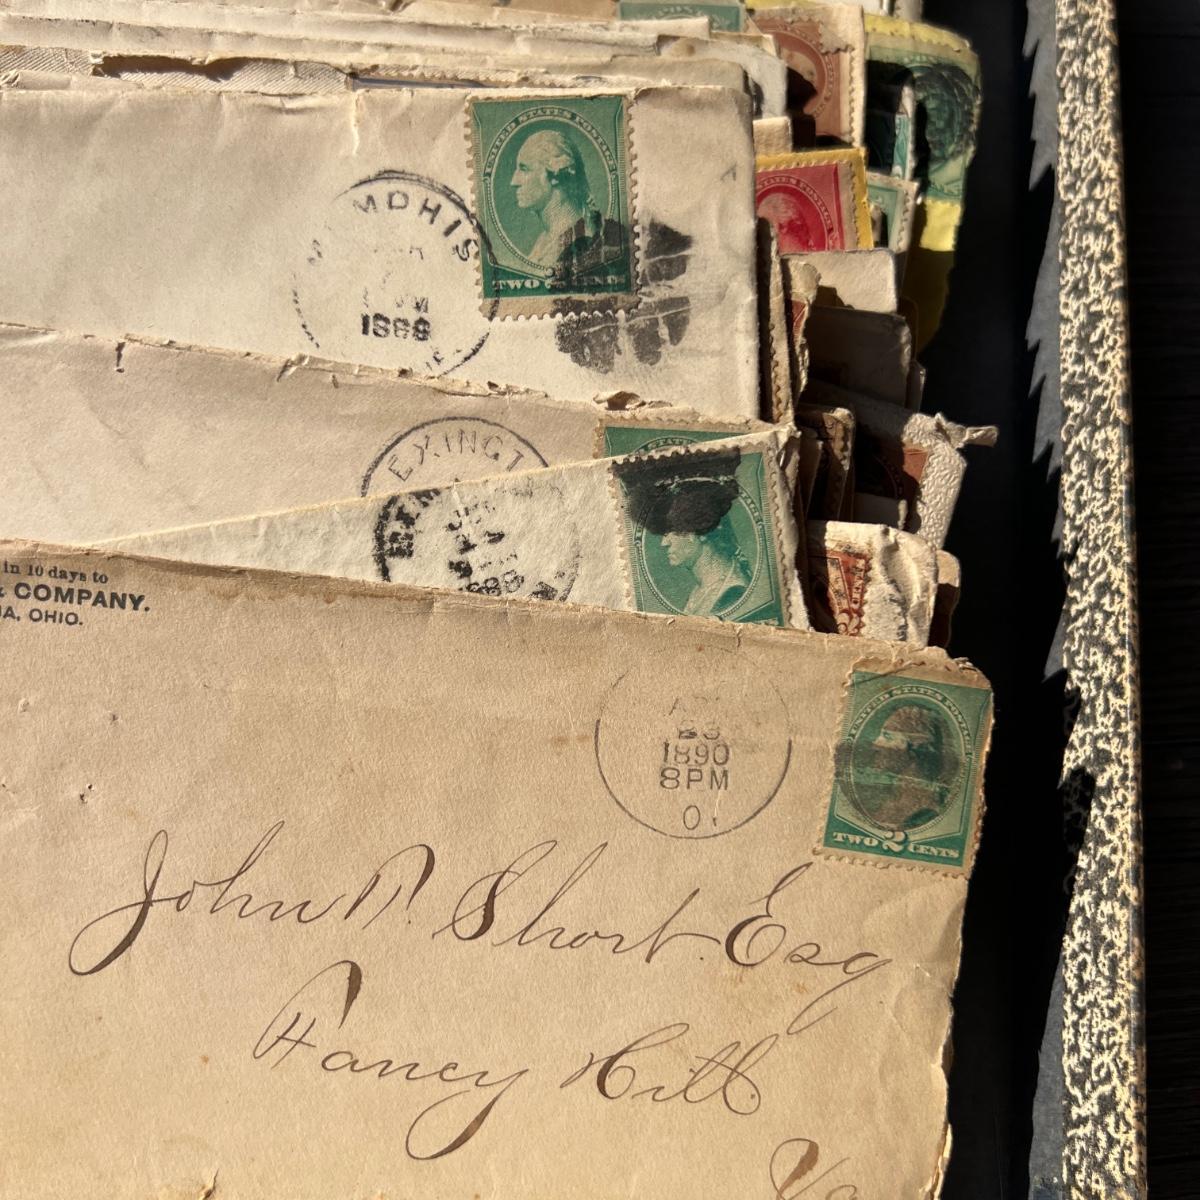 UNITED STATES POSTAGE
TWO 2 CENTS
MPHIS
1888
EXINGT
in 10 days to
& COMPANY.
A, OHIO.
23
1890
8PM
O.
UNITED STATES POSTAGE
TWO 2 CENTS
John P. Short. Esq
Fancy Hill
Va